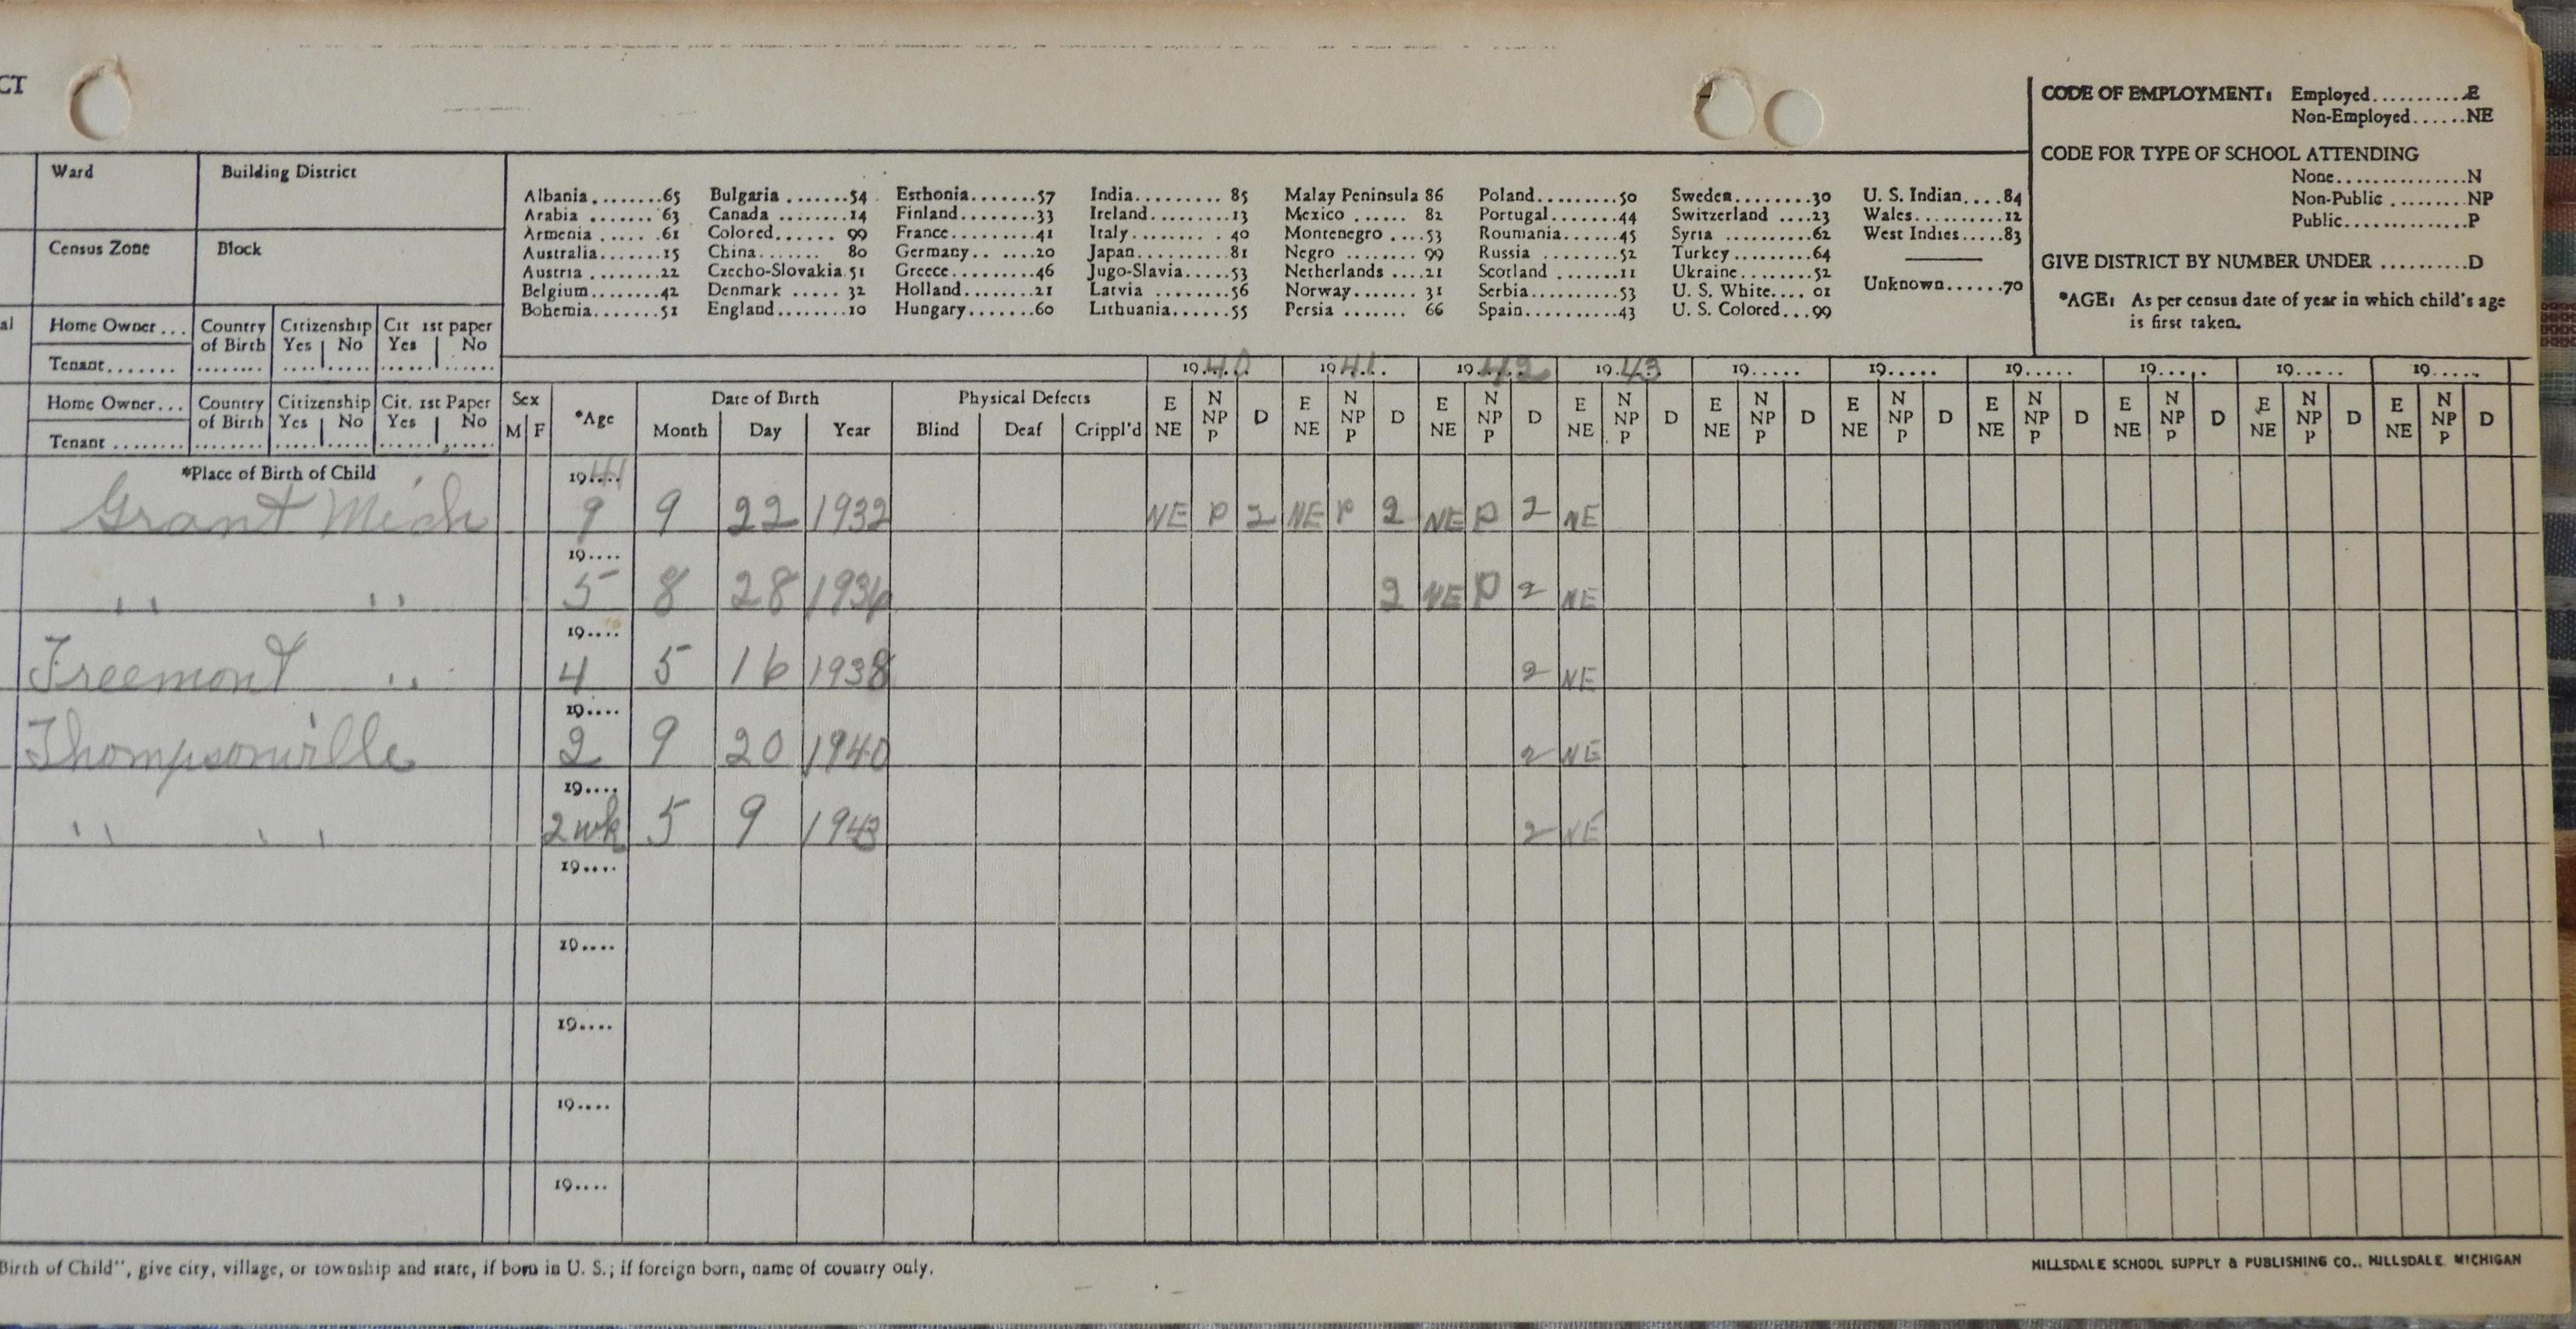 CT
CODE OF EMPLOYMENT: Employed..........E
Non-Employed......NE
CODE FOR TYPE OF SCHOOL ATTENDING
None...............N
Non-Public .........NP
Public..............P
GIVE DISTRICT BY NUMBER UNDER ..........D
*AGE: As per census date of year in which child's age
is first taken.
Ward Building District
Census Zone Block
Albania........65 Bulgaria.......54 Esthonia.......57 India......... 85 Malay Peninsula 86 Poland..........50 Sweden........30 U. S. Indian....84
Arabia ....... 63 Canada ........14 Finland........33 Ireland.........13 Mexico ...... 82 Portugal.......44 Switzerland ....23 Wales..........12
Armenia ..... .61 Colored...... 99 France.........41 Italy......... 40 Montenegro ....53 Roumania......45 Syria .........62 West Indies.....83
Australia.......15 China....... 80 Germany.. ....20 Japan..........81 Negro ........ 99 Russia ........52 Turkey.........64
Austria ........22 Czecho-Slovakia.51 Greece.........46 Jugo-Slavia.....53 Netherlands ....21 Scotland .......11 Ukraine........52
Belgium........42 Denmark ..... 32 Holland........21 Latvia ........56 Norway....... 31 Serbia..........53 U. S. White.... 01 Unknown......70
Bohemia.......51 England........10 Hungary.......60 Lithuania......55 Persia ....... 66 Spain..........43 U. S. Colored...99
al Home Owner... Country of Birth Citizenship Yes No Cit 1st paper Yes No
Tenant.......
19 40 19 41 19 42 19 43 19..... 19..... 19..... 19..... 19..... 19.....
Home Owner... Country of Birth Citizenship Yes No Cit. 1st Paper Yes No
Tenant ........
Sex M F *Age Date of Birth Month Day Year Physical Defects Blind Deaf Crippl'd
E NE N NP P D E NE N NP P D E NE N NP P D E NE N NP P D E NE N NP P D E NE N NP P D E NE N NP P D E NE N NP P D E NE N NP P D E NE N NP P D
*Place of Birth of Child 1941
Grant Mich 9 9 22 1932 NE P 2 NE P 2 NE P 2 NE
19....
" " 5 8 28 1936 2 NE P 2 NE
19....
Freemont " 4 5 16 1938 2 NE
19....
Thompsonville 2 9 20 1940 2 NE
19....
" " 2wk 5 9 1943 2 NE
19....
19....
19....
19....
19....
Birth of Child", give city, village, or township and state, if born in U. S.; if foreign born, name of country only.
HILLSDALE SCHOOL SUPPLY & PUBLISHING CO., HILLSDALE, MICHIGAN